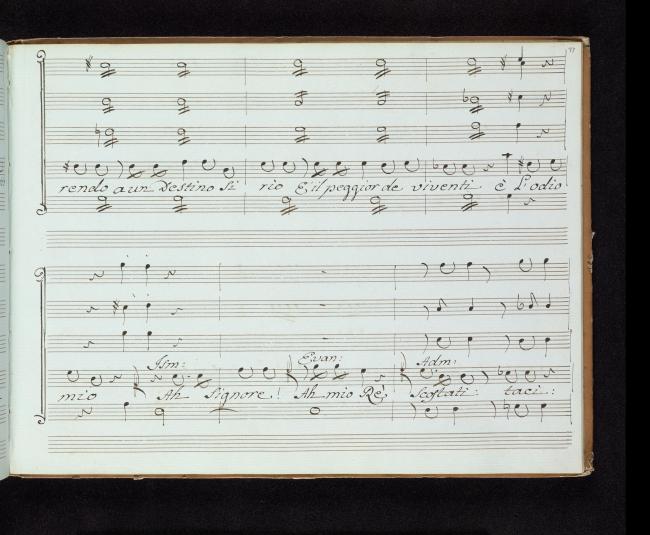 rendo a un Destino Si rio È il peggior de viventi è L'odio
Ism: Evan: Adm:
mio Ah Signore! Ah mio Rè, Scostati: taci: